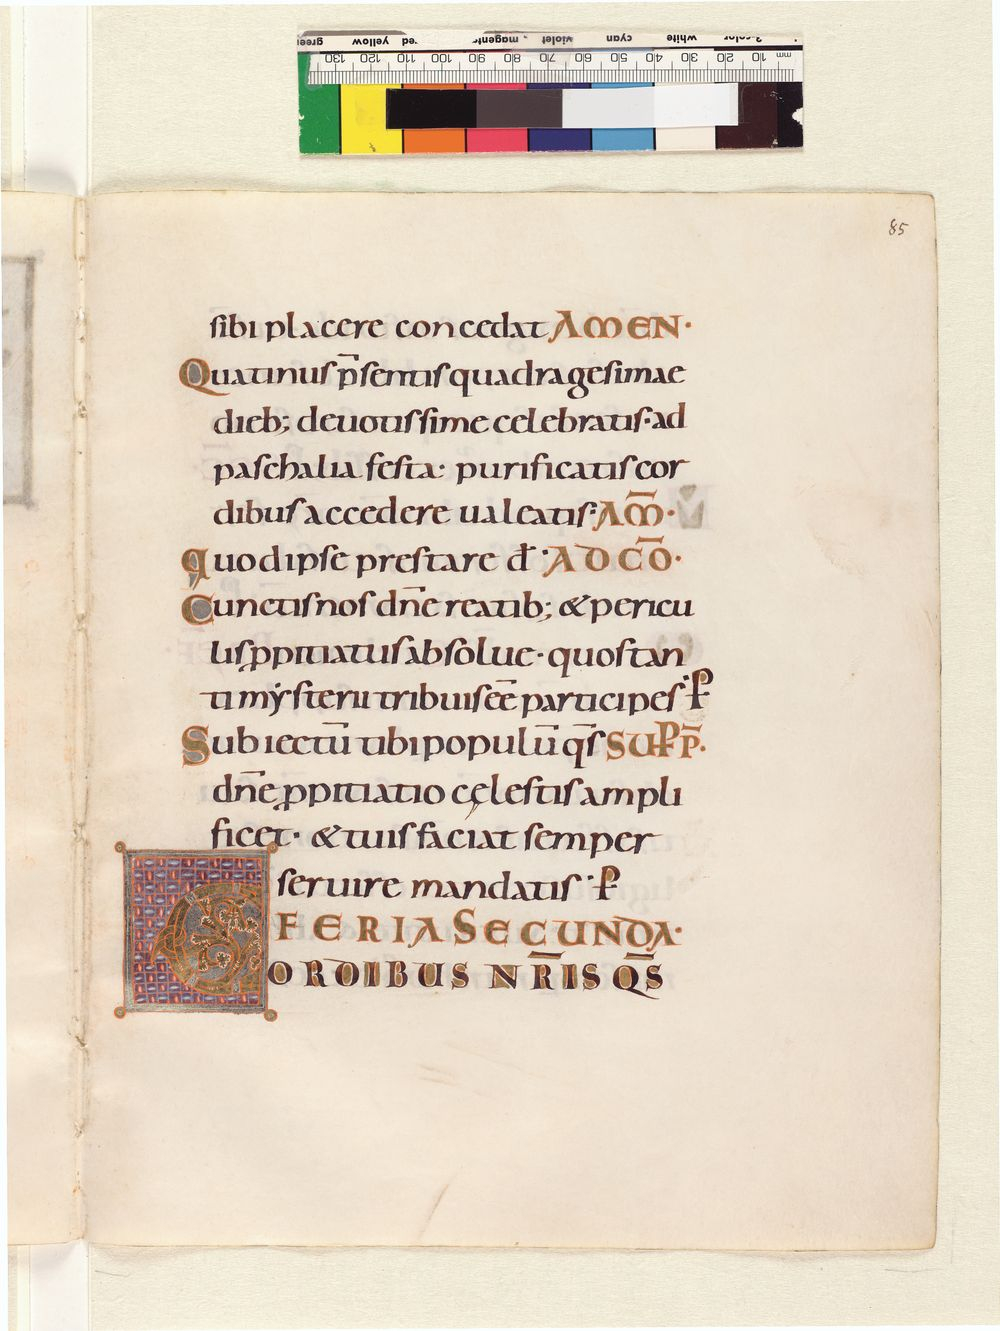 85
sibi placere concedat AMEN·
Quatinus p̄sentis quadragesimae
dieb; deuotissime celebratis· ad
paschalia festa· purificatis cor
dibus accedere ualeatis· AM̄·
quod ipse prestare d̄· AD CŌ·
Cunctis nos dn̄e reatib; & pericu
lis ꝓpitiatus absolue· quos tan
ti mẏsterii tribuis eē̄ participes· P̄
Subiectū tibi populū qs̄ SUPP̄·
dn̄e ꝓpitiatio cęlestis ampli
ficet· & tuis faciat semper
seruire mandatis· P̄
FERIA SECUNDA·
CORDIBUS NR̄IS QS̄